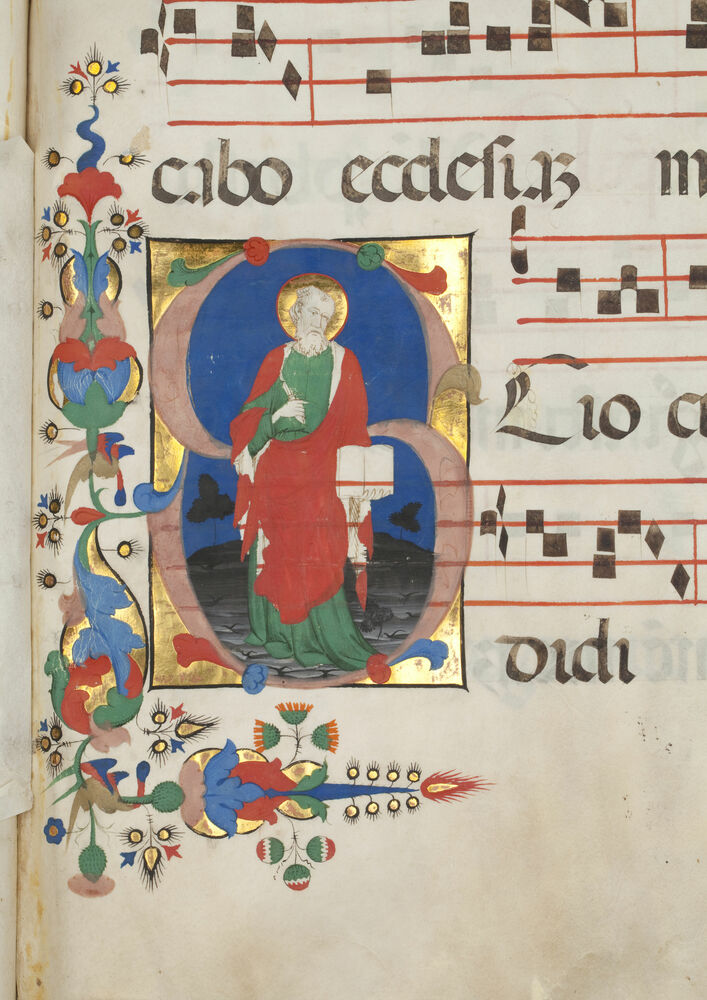 cabo ecclesiaꝫ m
SCio c
didi